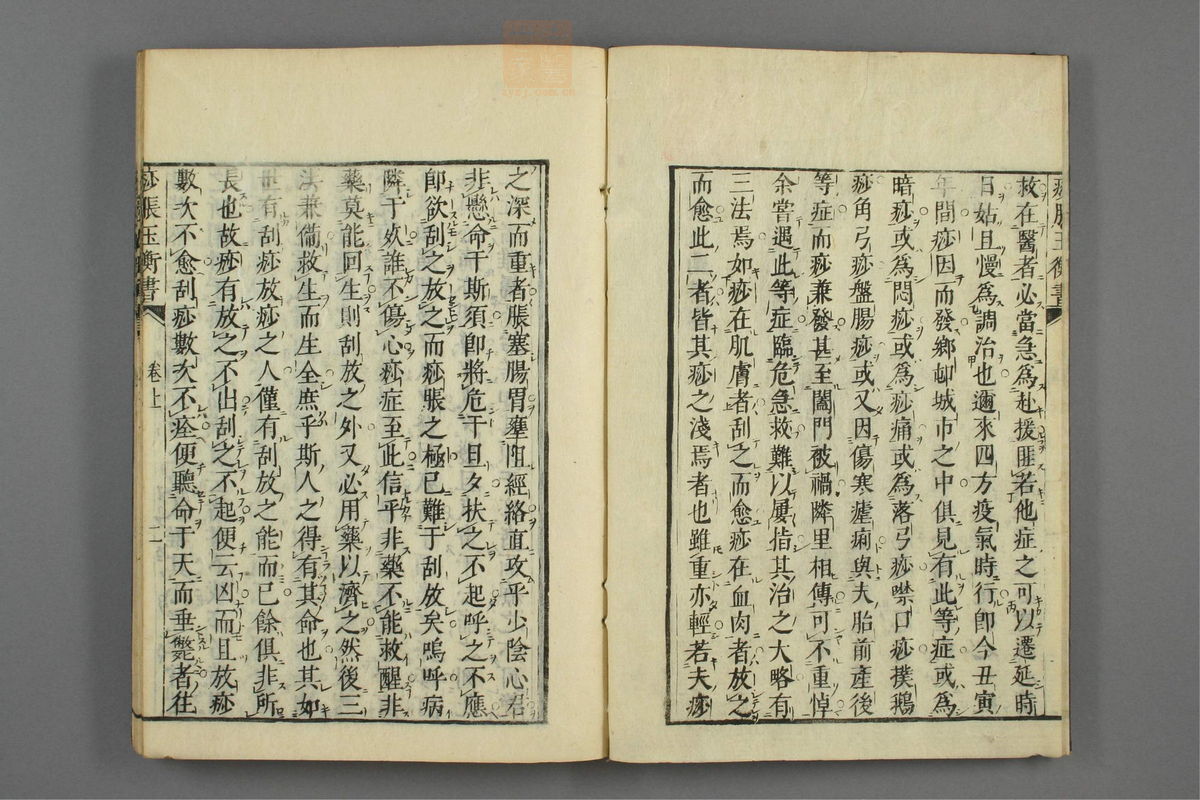 痧脹玉衡書
救在醫者必當急為赴援匪若他症之可以遷延時
日姑且慢為調治也邇來四方疫氣時行即今丑寅
年間痧因而發鄉邨城市之中俱見有此等症或為
暗痧或為悶痧或為痧痛或為落弓痧噤口痧撲鵝
痧角弓痧盤腸痧或又因傷寒瘧痢與夫胎前產後
等症而痧兼發甚至闔門被禍隣里相傳可不重悼
余嘗遇此等症臨危急救難以屢指其治之大略有
三法焉如痧在肌膚者刮之而愈痧在血肉者放之
而愈此二者皆其痧之淺焉者也雖重亦輕若夫痧
之深而重者脹塞腸胃壅阻經絡直攻乎少陰心君
非懸命于斯須即將危于旦夕扶之不起呼之不應
即欲刮之放之而痧脹之極已難于刮放矣嗚呼病
隣于死誰不傷心痧症至此信乎非藥不能救醒非
藥莫能回生則刮放之外又必用藥以濟之然後三
法兼備救生而生全庶乎斯人之得有其命也其如
世有刮痧放痧之人僅有刮放之能而已餘俱非所
長也故痧有放之不出刮之不起便云凶而且放痧
數次不愈刮痧數次不痊便聽命于天而垂斃者往
痧脹玉衡書
卷上
二